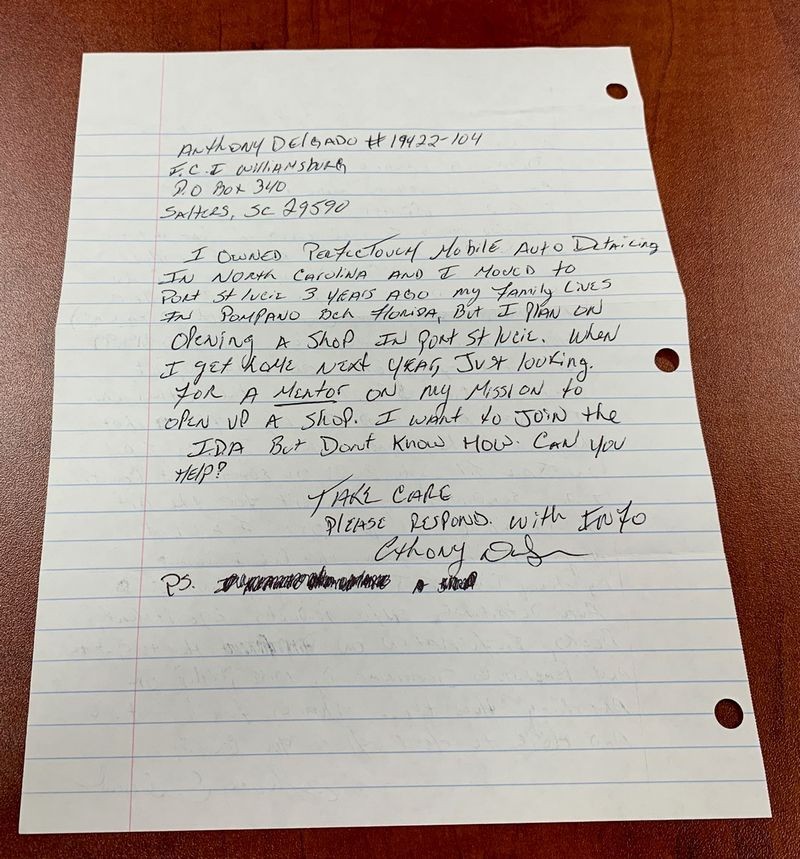 Anthony Delgado # 19422-104
F.C.I Williamsburg
P.O Box 340
Salters, SC 29590
I owned PerfecTouch Mobile Auto Detailing
in North Carolina and I moved to
Port St Lucie 3 years ago my family lives
in Pompano Bch Florida, but I plan on
opening a shop in Port St Lucie. When
I get home next year, Just looking.
for a Mentor on my mission to
open up a shop. I want to join the
IDA But Dont know How. Can you
Help?
Take Care
Please respond. with Info
PS.